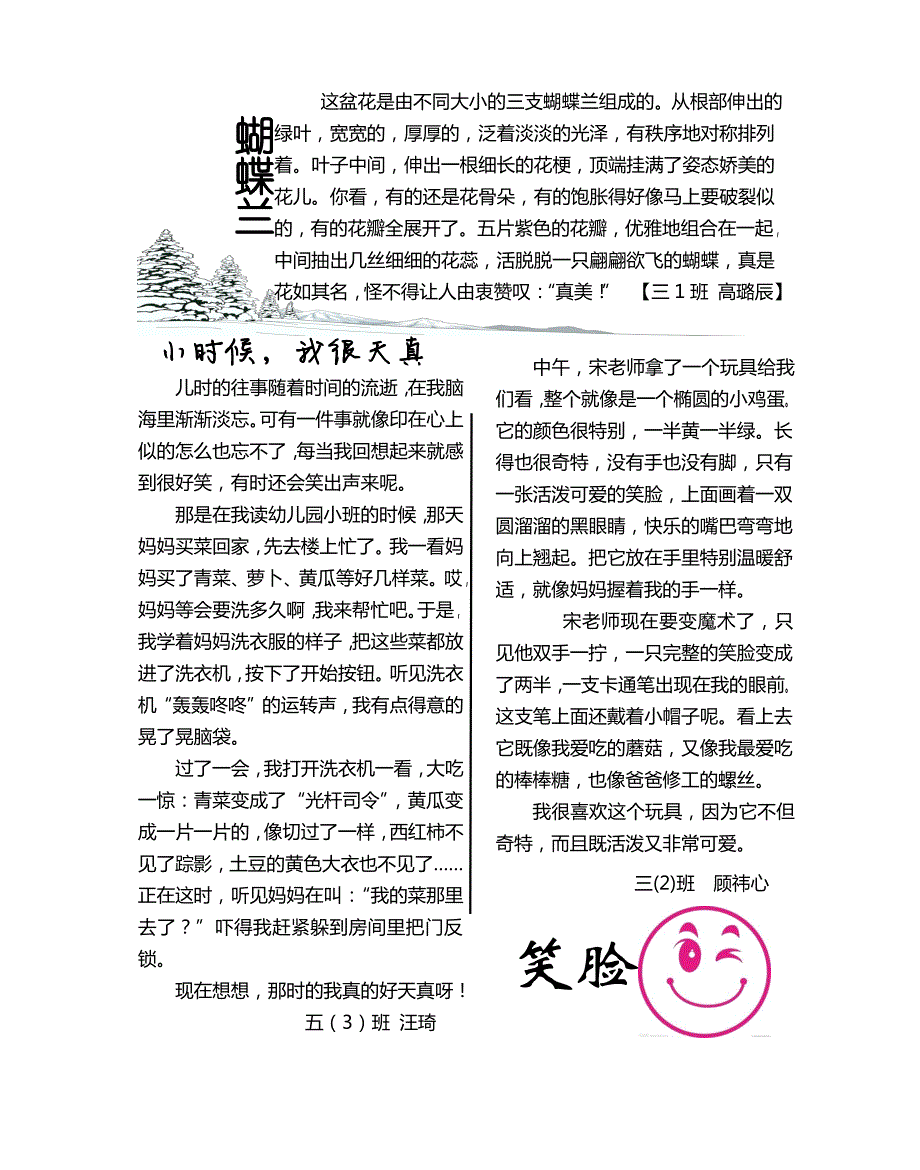 蝴蝶兰
这盆花是由不同大小的三支蝴蝶兰组成的。从根部伸出的
绿叶，宽宽的，厚厚的，泛着淡淡的光泽，有秩序地对称排列
着。叶子中间，伸出一根细长的花梗，顶端挂满了姿态娇美的
花儿。你看，有的还是花骨朵，有的饱胀得好像马上要破裂似
的，有的花瓣全展开了。五片紫色的花瓣，优雅地组合在一起，
中间抽出几丝细细的花蕊，活脱脱一只翩翩欲飞的蝴蝶，真是
花如其名，怪不得让人由衷赞叹：“真美！” 【三1班 高璐辰】
小时候，我很天真
儿时的往事随着时间的流逝，在我脑
海里渐渐淡忘。可有一件事就像印在心上
似的怎么也忘不了，每当我回想起来就感
到很好笑，有时还会笑出声来呢。
那是在我读幼儿园小班的时候，那天
妈妈买菜回家，先去楼上忙了。我一看妈
妈买了青菜、萝卜、黄瓜等好几样菜。哎，
妈妈等会要洗多久啊，我来帮忙吧。于是，
我学着妈妈洗衣服的样子，把这些菜都放
进了洗衣机，按下了开始按钮。听见洗衣
机“轰轰咚咚”的运转声，我有点得意的
晃了晃脑袋。
过了一会，我打开洗衣机一看，大吃
一惊：青菜变成了“光杆司令”，黄瓜变
成一片一片的，像切过了一样，西红柿不
见了踪影，土豆的黄色大衣也不见了……
正在这时，听见妈妈在叫：“我的菜那里
去了？”吓得我赶紧躲到房间里把门反
锁。
现在想想，那时的我真的好天真呀！
五（3）班 汪琦
中午，宋老师拿了一个玩具给我
们看，整个就像是一个椭圆的小鸡蛋。
它的颜色很特别，一半黄一半绿。长
得也很奇特，没有手也没有脚，只有
一张活泼可爱的笑脸，上面画着一双
圆溜溜的黑眼睛，快乐的嘴巴弯弯地
向上翘起。把它放在手里特别温暖舒
适，就像妈妈握着我的手一样。
宋老师现在要变魔术了，只
见他双手一拧，一只完整的笑脸变成
了两半，一支卡通笔出现在我的眼前。
这支笔上面还戴着小帽子呢。看上去
它既像我爱吃的蘑菇，又像我最爱吃
的棒棒糖，也像爸爸修工的螺丝。
我很喜欢这个玩具，因为它不但
奇特，而且既活泼又非常可爱。
三(2)班 顾祎心
笑脸